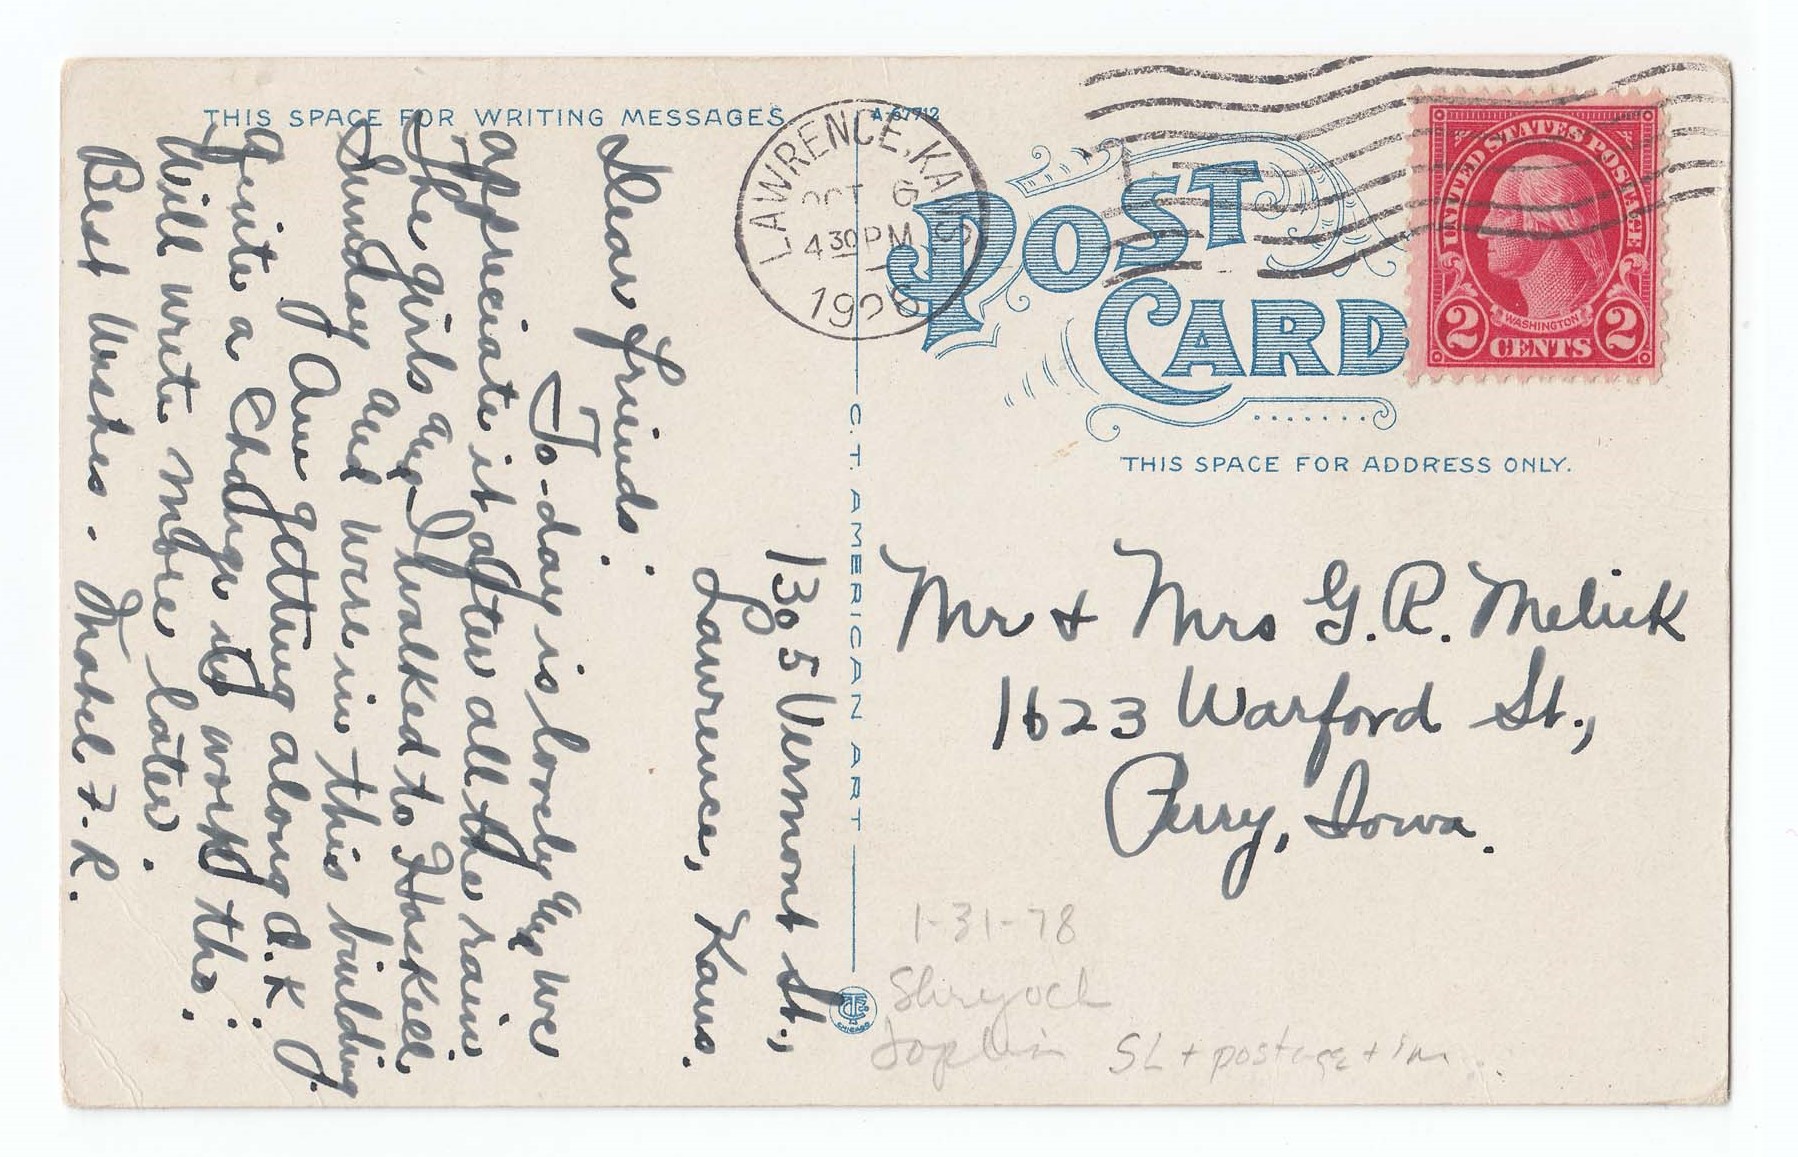 THIS SPACE FOR WRITING MESSAGES
A-67712
LAWRENCE, KANS
OCT 6
4 30 PM
1926
POST
CARD
UNITED STATES POSTAGE
WASHINGTON
2 CENTS 2
THIS SPACE FOR ADDRESS ONLY.
C. T. AMERICAN ART
CHICAGO
1305 Vermont St.,
Lawrence, Kans.
Dear Friends:
To-day is lovely and we
appreciate it after all the rain
The girls and I walked to Haskell
Sunday and were in this building
I am getting along O.K.
Quite a change in work tho.
Will write more later.
Best Wishes. Mabel F. R.
Mr + Mrs G. R. Melick
1623 Warford St.,
Perry, Iowa.
1-31-78
Shryock
Joplin SL + postage + im